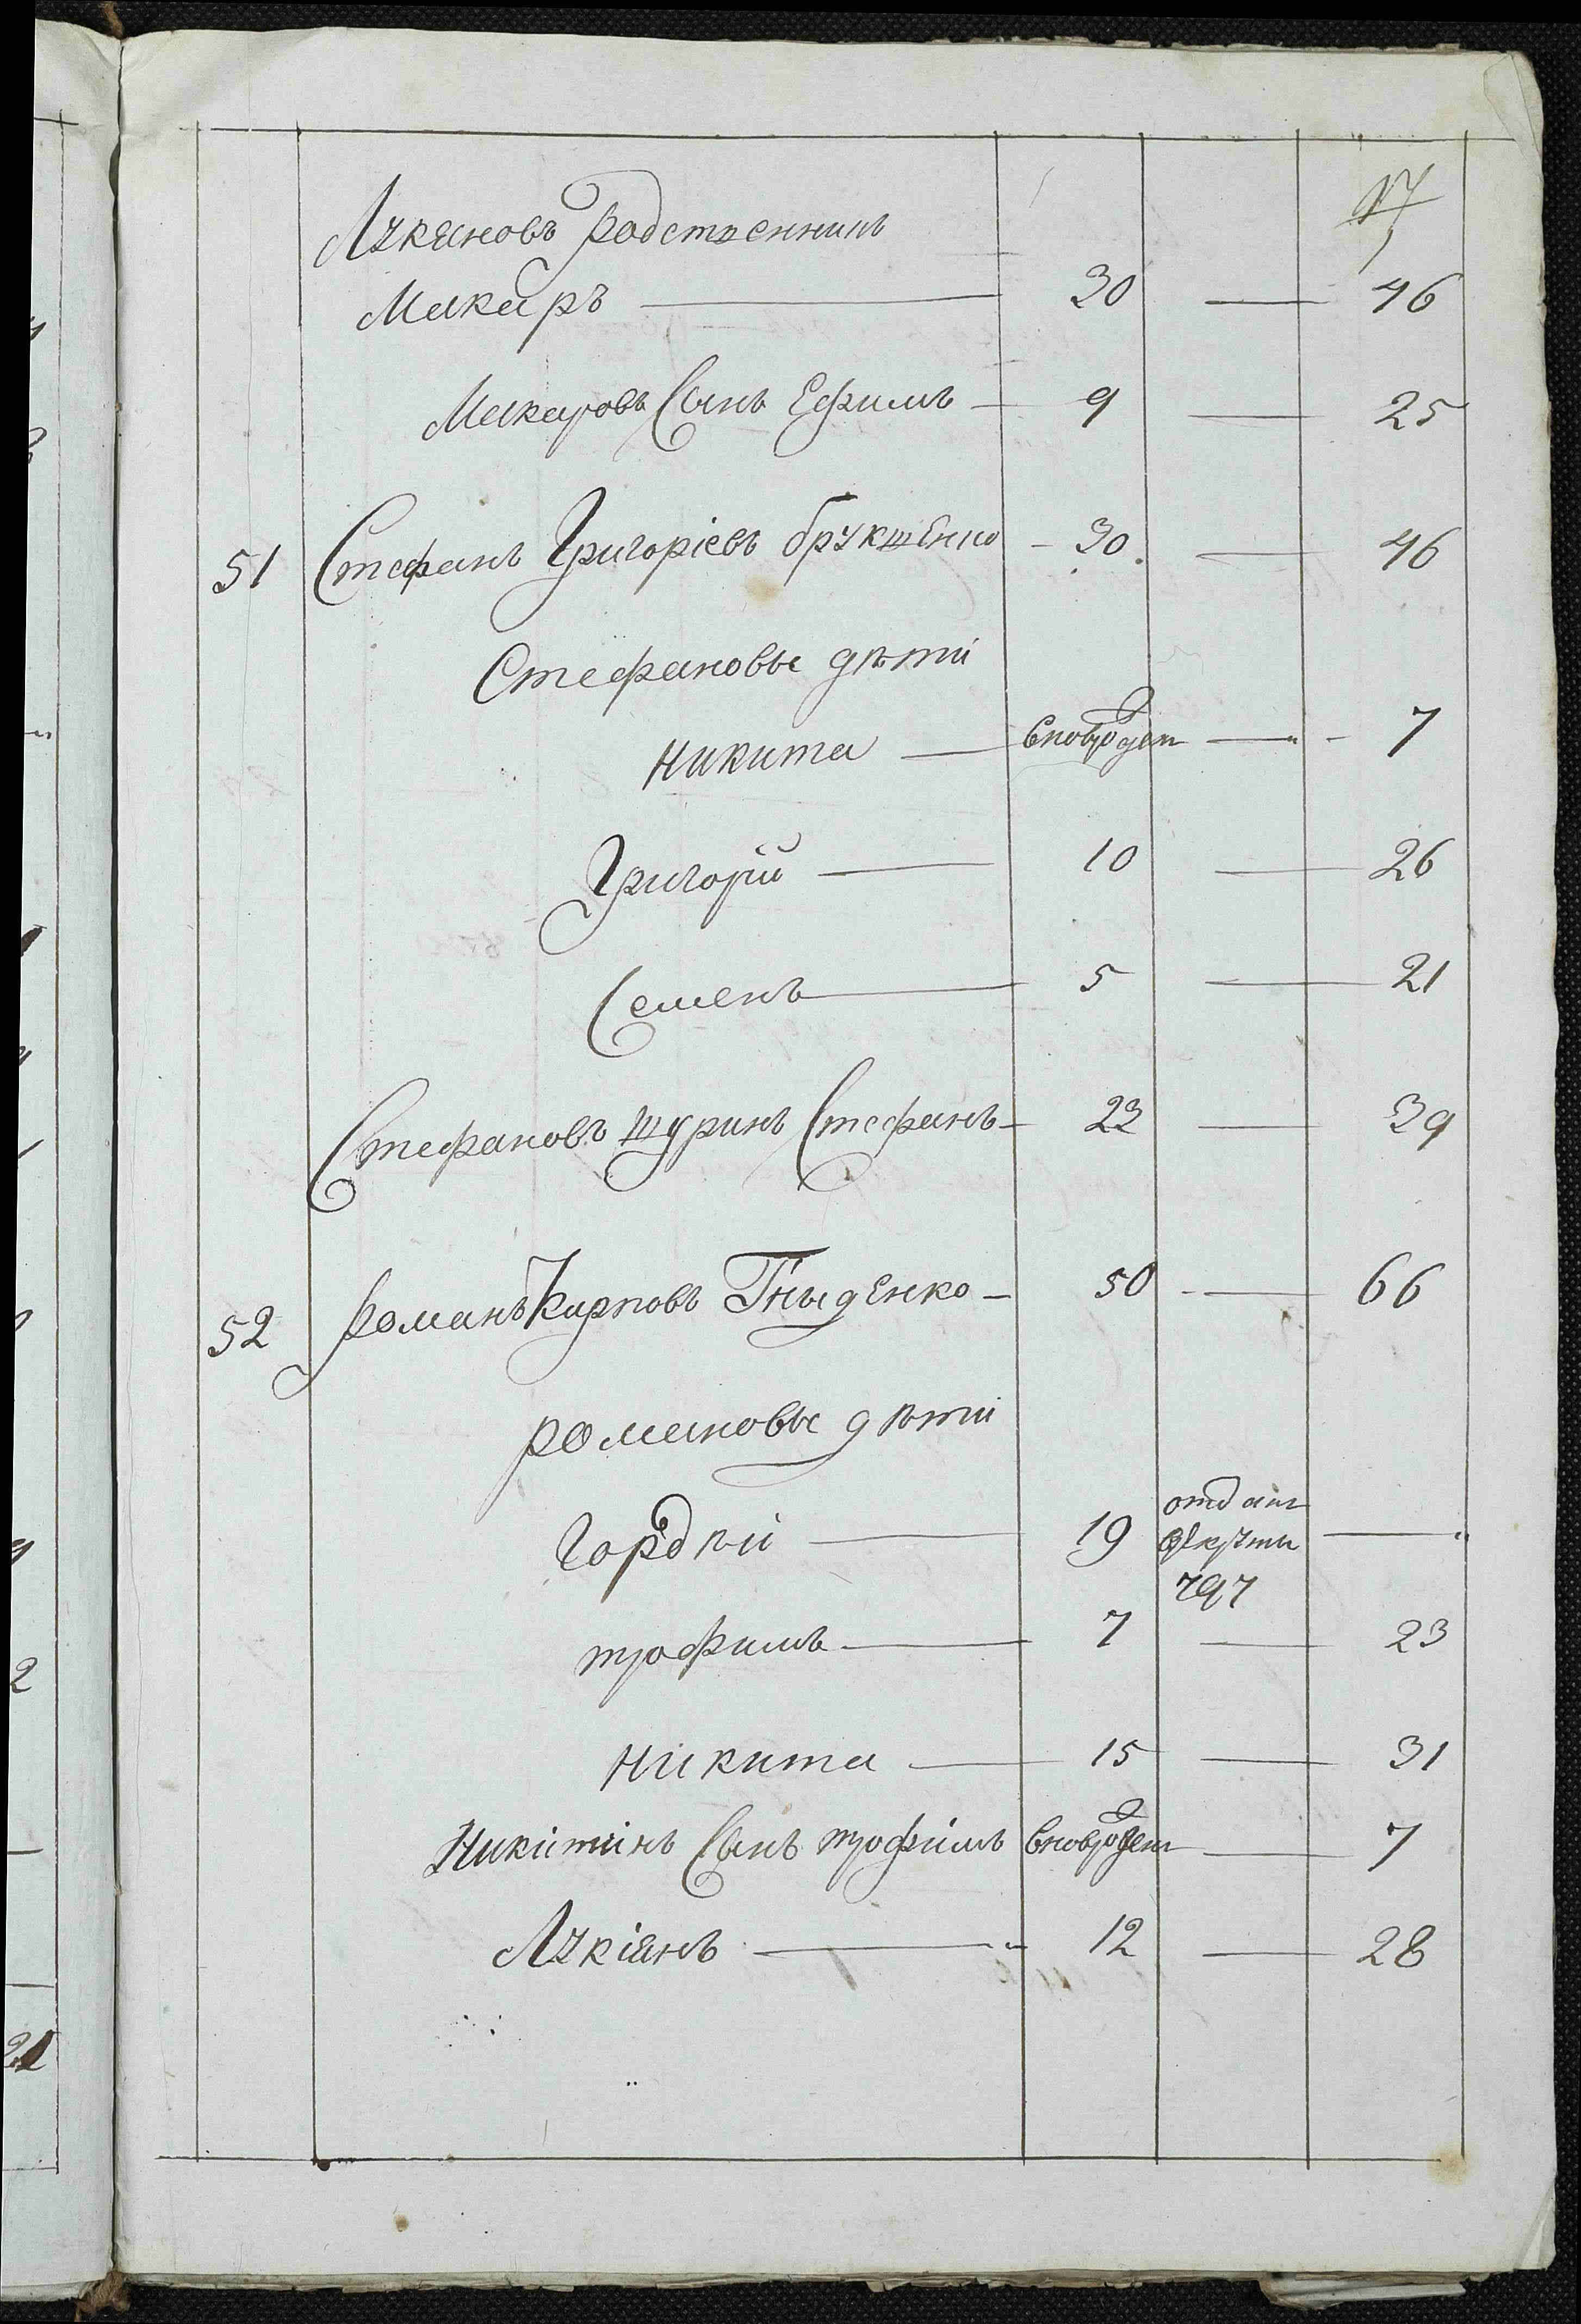 17
Лукяновъ родственникъ
Макаръ — 30 — 46
Макаровъ Сынъ Ефимъ — 9 — 25
51 Стефанъ Григорієвъ — 30 — 46
Стефановы дѣти
никита — вновьрожден — 7
Григорій — 10 — 26
Семенъ — 5 — 21
Стефановъ шуринъ Стефанъ — 23 — 39
52 романъ Карповъ Гныденко — 50 — 66
романовы дѣти
Гордѣй — 19 отданъ —
врекруты
797
трофимъ — 7 — 23
никита — 15 — 31
Никитинъ Сынъ трофимъ вновьрожден — 7
Лукіянъ — 12 — 28